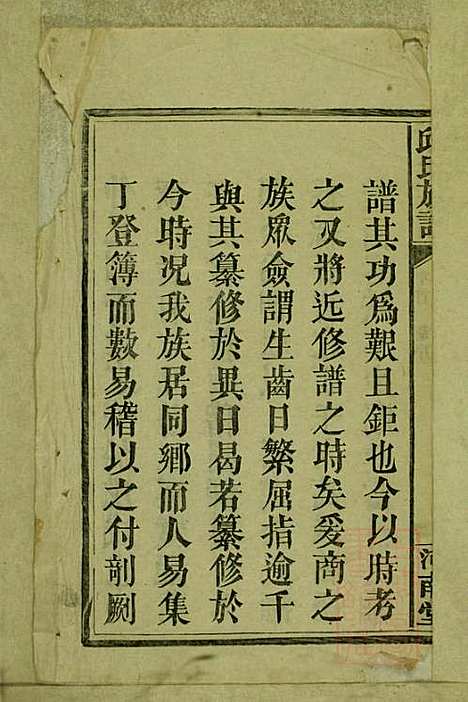 邱氏族譜
河南堂
譜其功爲艱且鉅也今以時考
之又將近修譜之時矣爰商之
族眾僉謂生齒日繁屈指逾千
與其纂修於異日曷若纂修於
今時况我族居同鄉而人易集
丁登簿而數易稽以之付剞劂